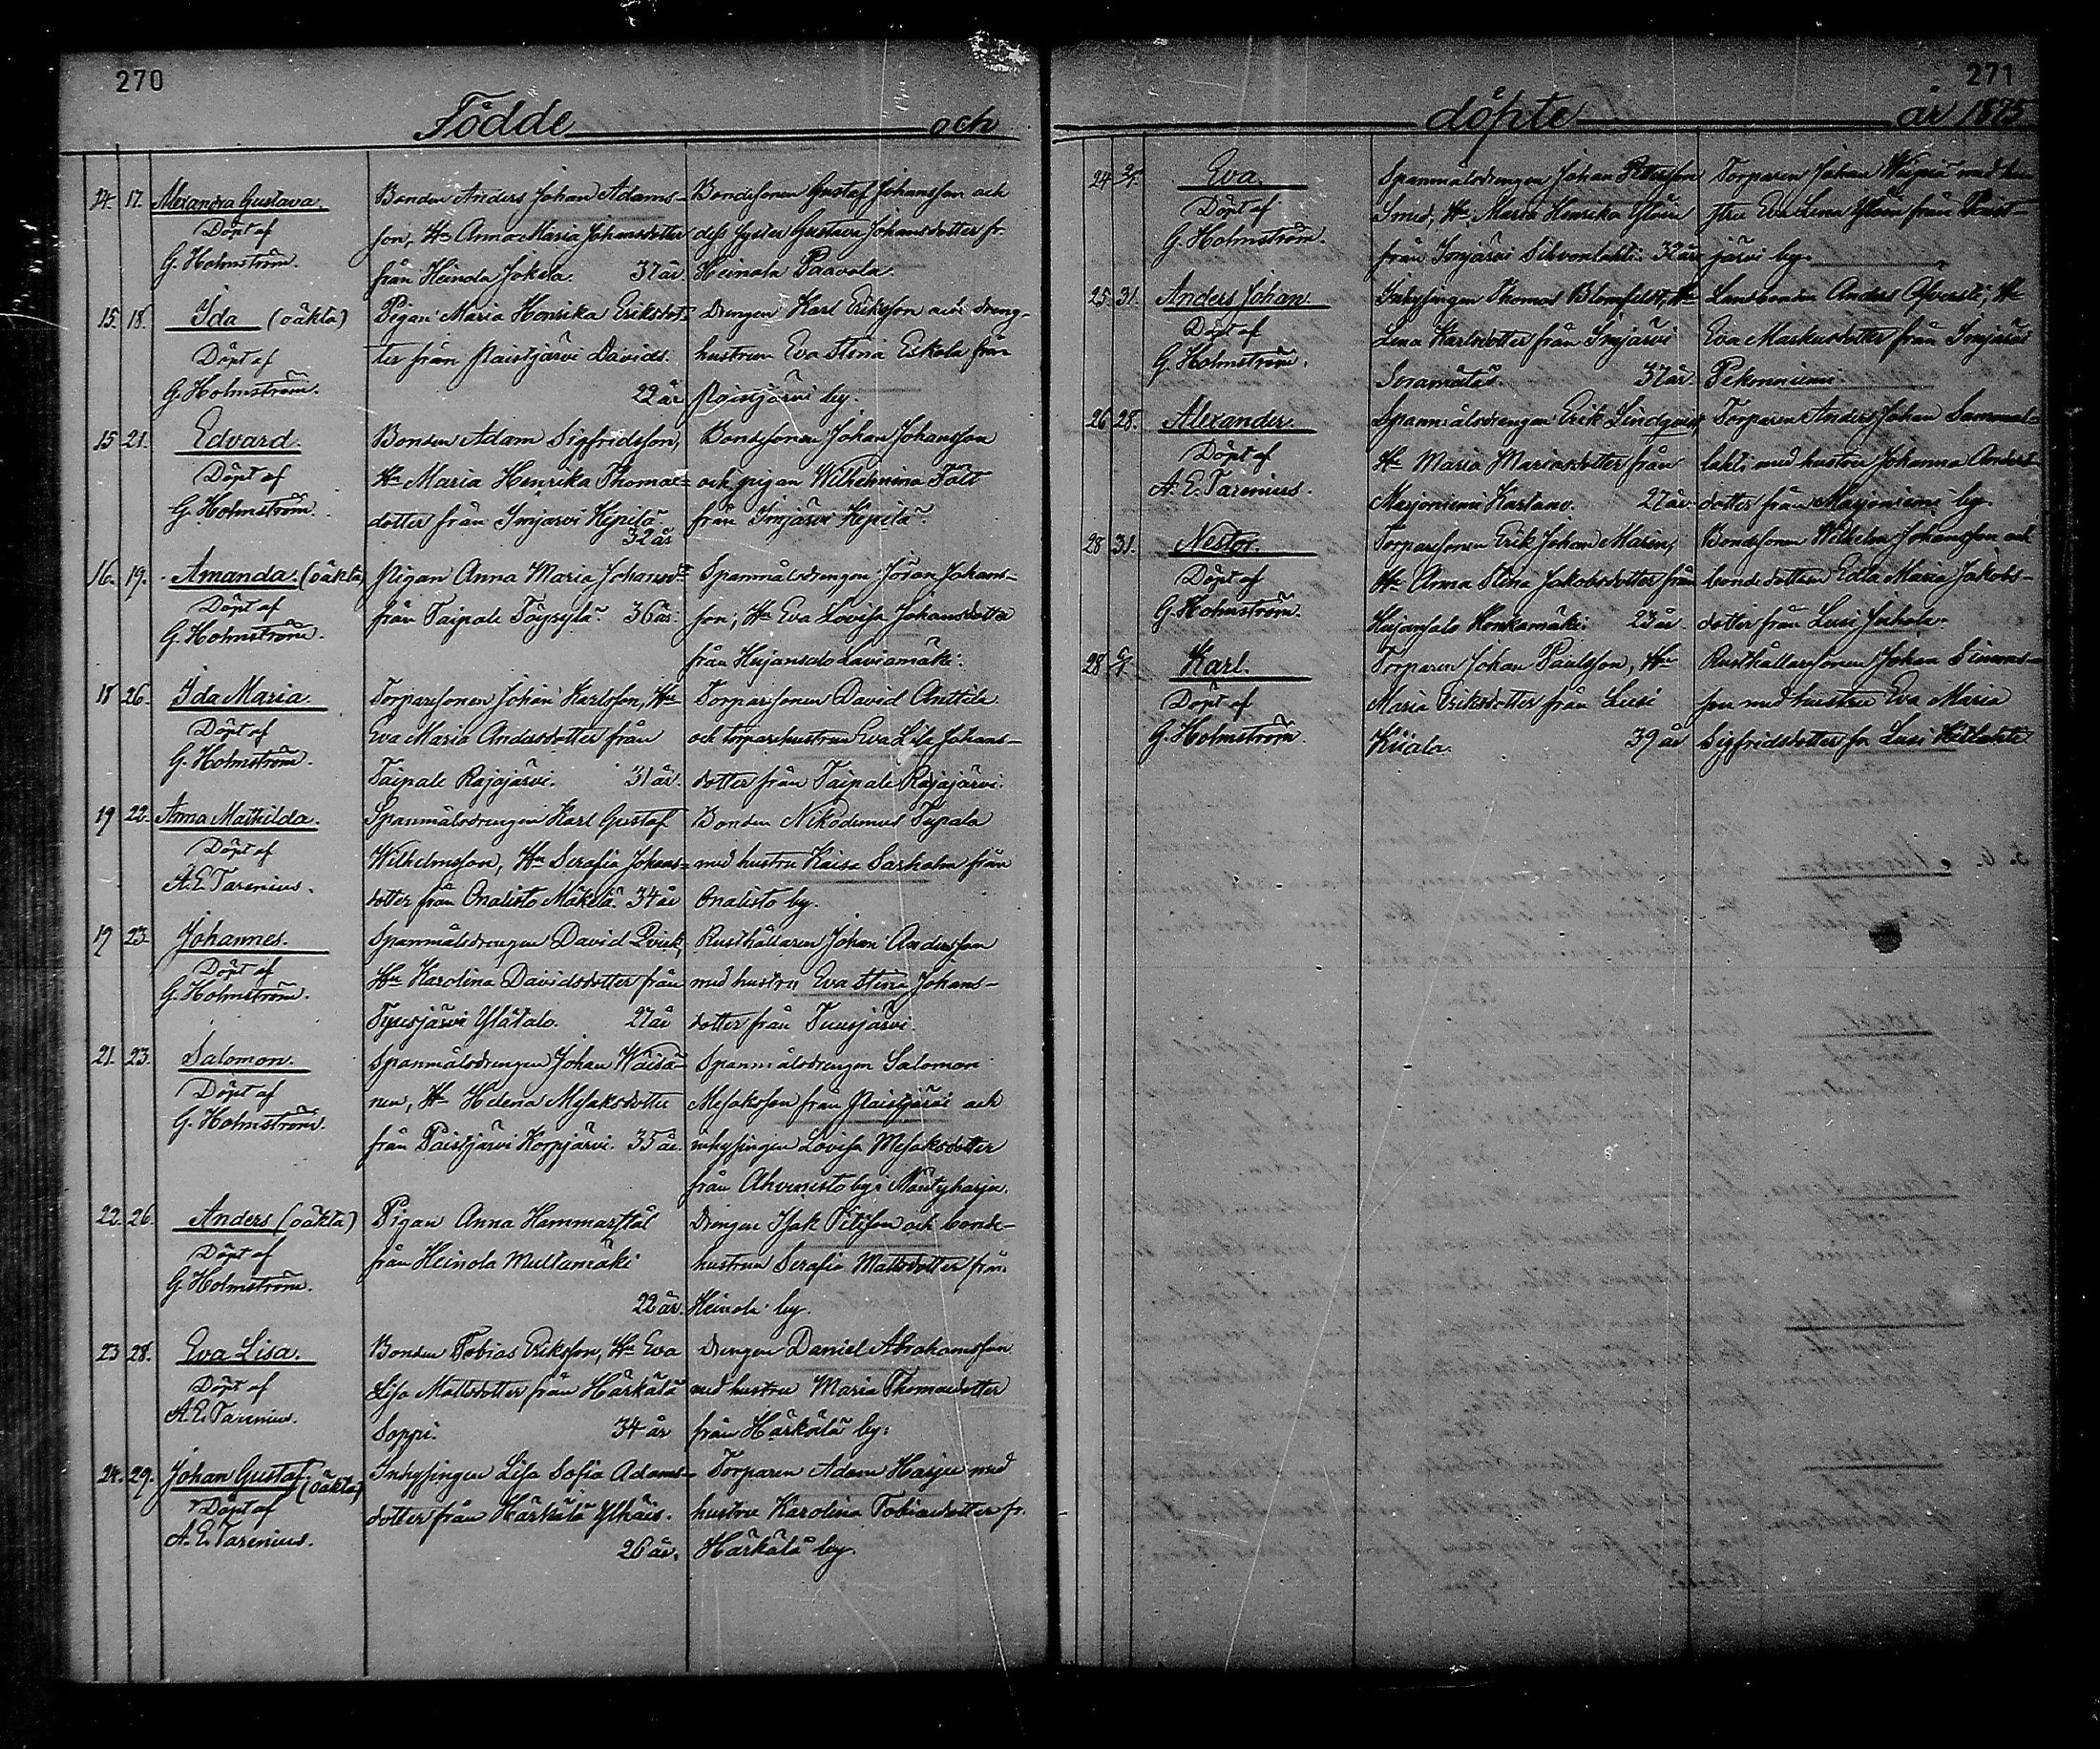 270
Födde och
14. 17. Alexandra Gustava.
Döpt af
G. Holmström.
Bonden Anders Johan Adams-
son, Hu Anna Maria Johansdotter
från Heinola Jokela. 37 år
Bondesonen Gustaf Johansson och
dess syster Gustava Johansdotter fr.
Heinola Paavola.
15. 18. Ida (oäkta)
Döpt af
G. Holmström.
Pigan Maria Henrika Eriksdot-
ter från Paistjärvi Davids.
22 år
Drengen Karl Eriksson och dreng-
hustrun Eva Stina Eskola från
Paistjärvi by.
15 21. Edvard.
Döpt af
G. Holmström.
Bonden Adam Sigfridsson,
Hu Maria Henrika Thomas-
dotter från Imjärvi Kepilä
32 år
Bondesonen Johan Johansson
och pigan Wilhelmina Fält
från Imjärvi Kepilä.
16. 19. Amanda. (oäkta)
Döpt af
G. Holmström.
Pigan Anna Maria Johansd:r
från Taipale Töyrylä. 36 år.
Spanmålsdrengen Johan Johans-
son, Hu Eva Lovisa Johansdotter
från Hujansalo Laviamäki.
18 26. Ida Maria.
Döpt af
G. Holmström.
Torparsonen Johan Karlsson, Hu
Eva Maria Andersdotter från
Taipale Rajajärvi. 31 år.
Torparsonen David Anttila
och torparhustrun Eva Lisa Johans-
dotter från Taipale Rajajärvi.
19 22. Anna Mathilda.
Döpt af
A. E. Tarenius.
Spanmålsdrengen Karl Gustaf
Wilhelmsson, Hu Serafia Johans-
dotter från Onalisto Mäkelä. 34 år
Bonden Nikodemus Tupala
med hustru Kaisa Saxholm från
Onalisto by.
19 23. Johannes.
Döpt af
G. Holmström.
Spanmålsdrengen David Qvick,
Hu Karolina Davidsdotter från
Tuusjärvi Ylätalo. 27 år
Rusthållaren Johan Andersson
med hustru Eva Stina Johans-
dotter från Tuusjärvi.
21. 23. Salomon.
Döpt af
G. Holmström.
Spanmålsdrengen Johan Wäisä-
nen, Hu Helena Mesaksdotter
från Paistjärvi Korpjärvi. 35 år.
Spanmålsdrengen Salomon
Mesaksson från Paistjärvi och
inhysingen Lovisa Mesaksdotter
från Ahvenisto by i Mäntyharju.
22. 26. Anders (oäkta)
Döpt af
G. Holmström.
Pigan Anna Hammarstål
från Heinola Multamäki
22 år.
Drengen Isak Pettson och bonde-
hustrun Serafia Mattsdotter från
Heinola by.
23 28. Eva Lisa.
Döpt af
A. E. Tarenius.
Bonden Tobias Eriksson, Hu Eva
Lisa Mattsdotter från Härkälä
Soppi. 34 år
Drengen Daniel Abrahamsson
med hustru Maria Thomasdotter
från Härkälä by.
24. 29. Johan Gustaf. (oäkta)
Döpt af
A. E. Tarenius.
Inhysingen Lisa Sofia Adams-
dotter från Härkälä Ylhäis.
26 år.
Torparen Adam Harju med
hustru Karolina Tobiasdotter fr.
Härkälä by.
271
döpte år 1875
24 Eva.
Döpt af
G. Holmström.
Spanmålsdrengen Johan Pettersson
Smed, Hu Maria Henrika Ylöin
från Imjärvi Sihvonlahti. 32 år
Torparen Johan med hu-
stru Eva Lena Ylöin från Paist-
järvi by.
25 31. Anders Johan.
Döpt af
G. Holmström.
Inhysingen Thomas Blomfelt, Hu
Lena Karlsdotter från Imjärvi
Soramäta. 37 år.
Landbonden Anders Ofversti, Hu
Eva Markusdotter från Imjärvi
Pekonniemi.
26 28. Alexander.
Döpt af
A. E. Tarenius.
Spanmålsdrengen Erik Lindqvist,
Hu Maria Mariasdotter från
Marjoniemi Kartano. 27 år.
Torparen Anders Johan Sammal-
lahti med hustru Johanna Anders-
dotter från Marjoniemi by.
28 31. Nestor.
Döpt af
G. Holmström.
Torparsonen Erik Johan Marin,
Hu Anna Stina Jakobsdotter från
Hujansalo Honkamäki. 23 år.
Bondesonen Wilhelm Johansson och
bondedottern Edla Maria Jakobs-
dotter från Lusi Juhola.
28 Karl.
Döpt af
G. Holmström.
Torparen Johan Paulsson, Hu
Maria Eriksdotter från Lusi
Kiiala. 39 år
Rusthållarsonen Johan Simons-
son med hustru Eva Maria
Sigfridsdotter fr. Lusi